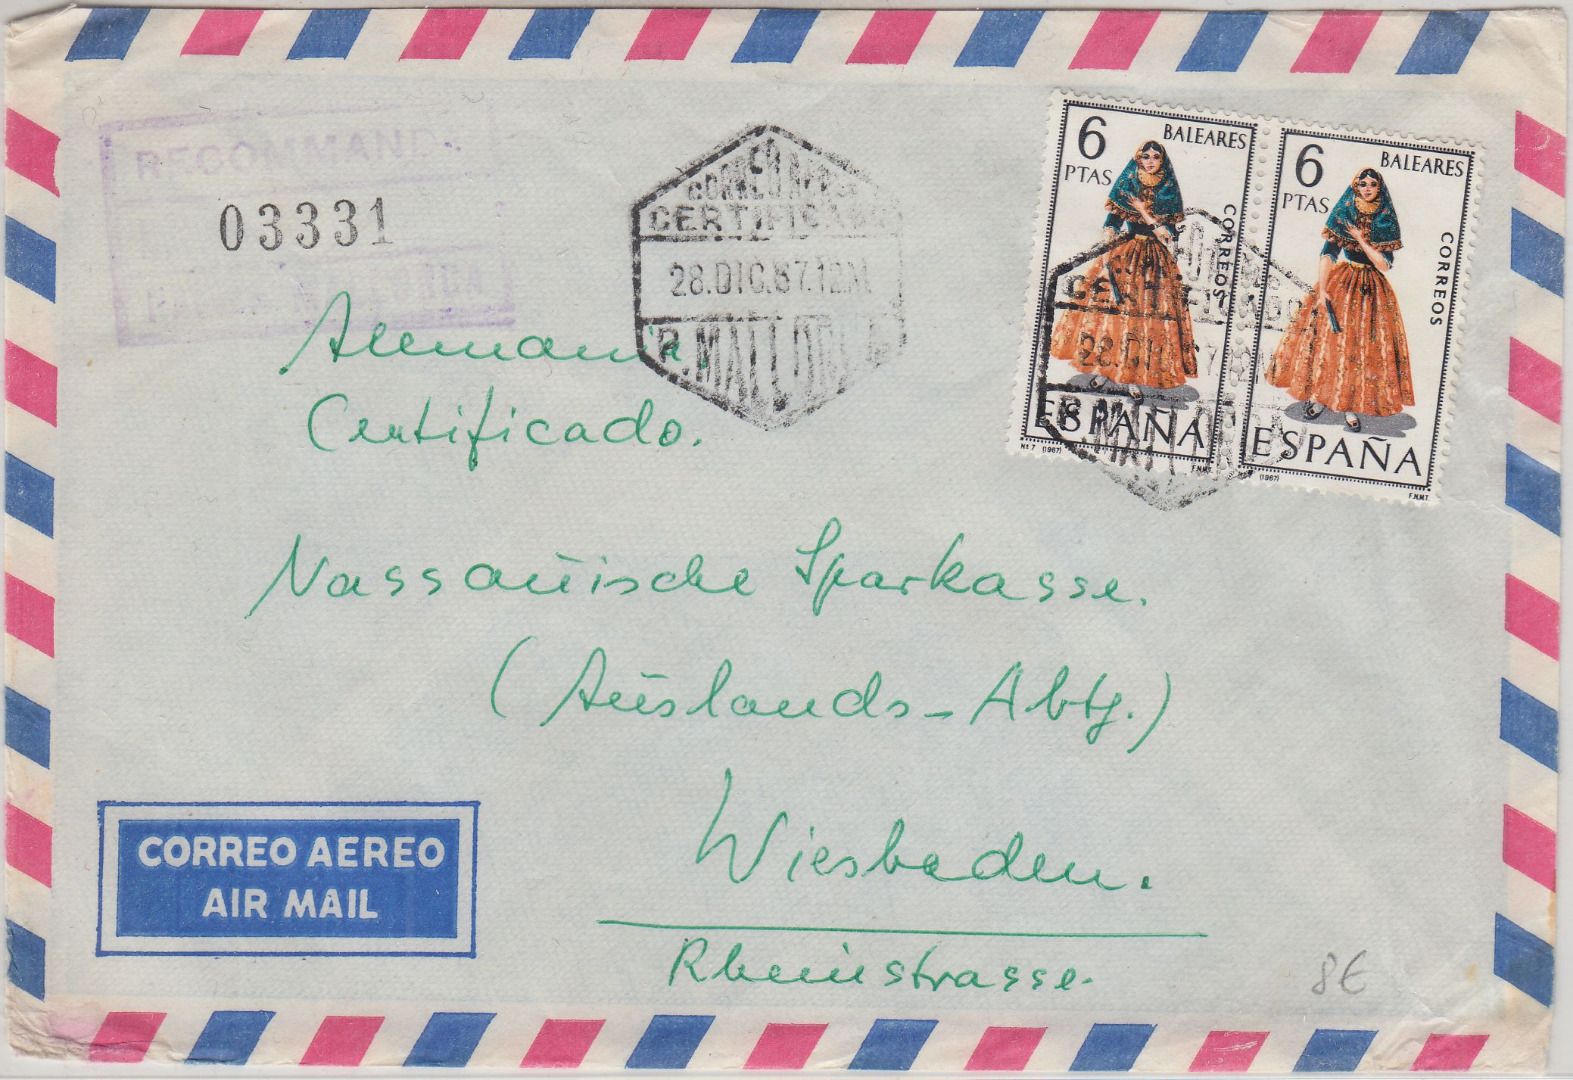 RECOMMANDE
03331
CORREO AEREO
CERTIFICADO
28.DIC.67.12M
P.MALLORCA
6 PTAS
BALEARES
CORREOS
ESPAÑA
Nº 7 (1967) F.N.M.T.
6 PTAS
BALEARES
CORREOS
ESPAÑA
(1967) F.N.M.T.
CERTIFICADO
28.DIC.67.12M
P.MALLORCA
Alemania
Certificado.
Nassauische Sparkasse.
(Auslands-Abtg.)
Wiesbaden.
Rheinstrasse.
CORREO AEREO
AIR MAIL
8€